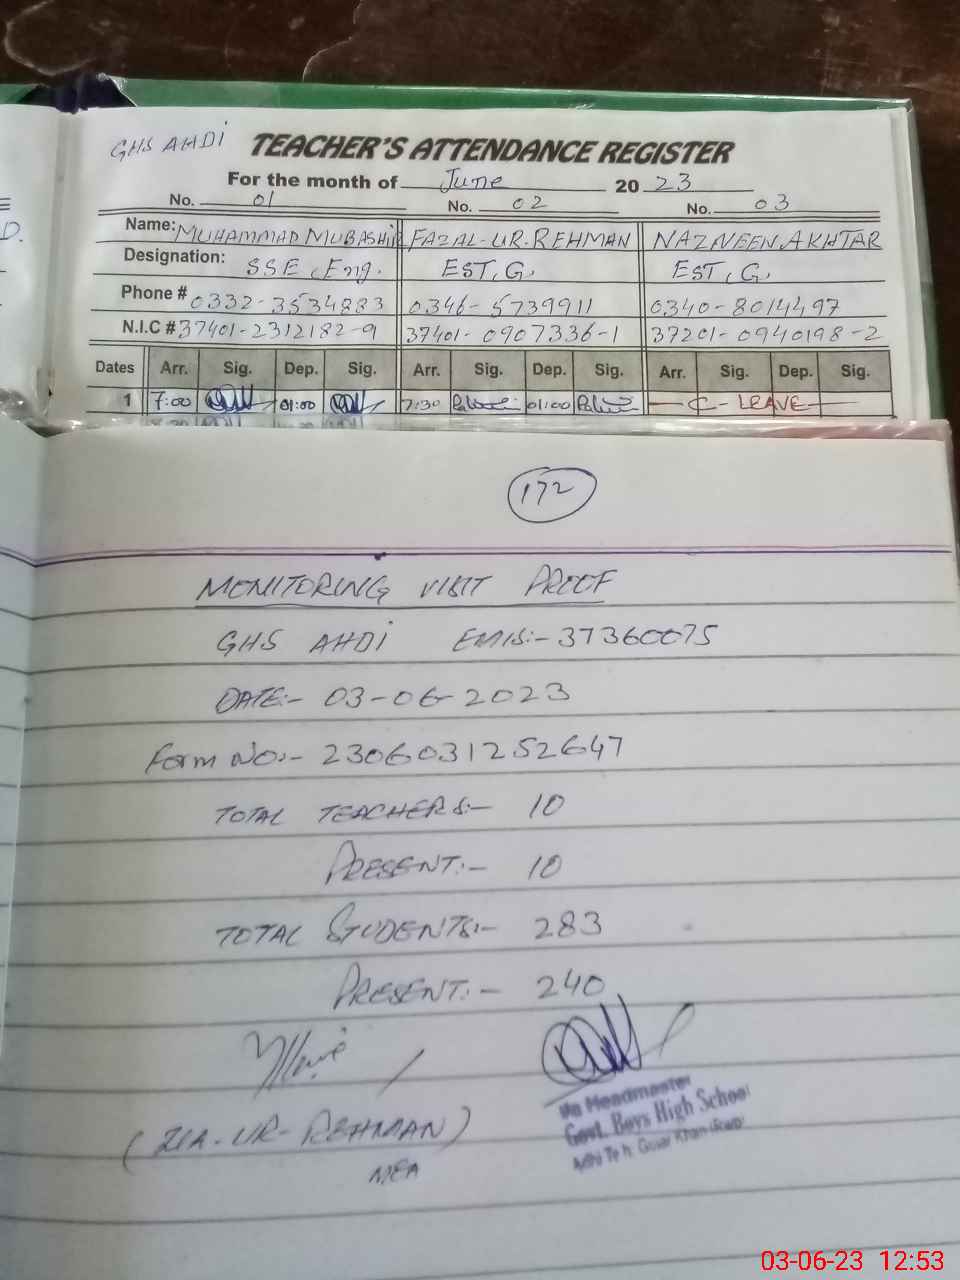 GHS AHDI TEACHER'S ATTENDANCE REGISTER
For the month of June 2023
No. 01 No. 02 No. 03
Name: MUHAMMAD MUBASHIR FAZAL-UR-REHMAN NAZNEEN AKHTAR
Designation: SSE, Eng. EST, G. EST, G.
Phone # 0332-3534883 0346-5739911 0340-8014497
N.I.C # 37401-2312182-9 37401-0907336-1 37201-0940198-2
Dates Arr. Sig. Dep. Sig. Arr. Sig. Dep. Sig. Arr. Sig. Dep. Sig.
1 7:00 01:00 7:30 01:00 C-LEAVE
D.
172
MONITORING VISIT PROOF
GHS AHDI EMIS:- 37360075
DATE:- 03-06-2023
Form No:- 2306031252647
TOTAL TEACHERS:- 10
PRESENT:- 10
TOTAL STUDENTS:- 283
PRESENT:- 240
(ZIA-UR-REHMAN)
MEA
Headmaster
Govt. Boys High School
Ahdi Teh. Gujar Khan (Rwp)
03-06-23 12:53